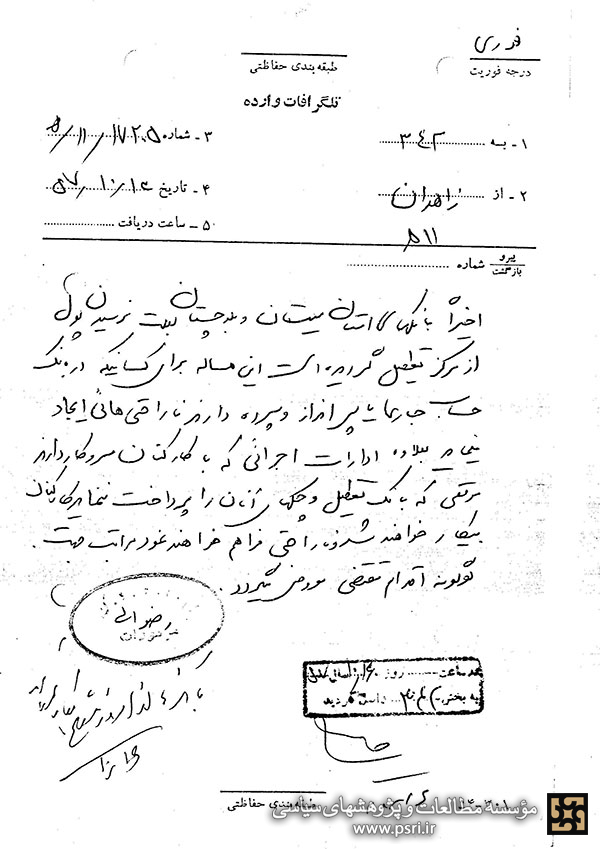 فوری
درجه فوریت
طبقه‌بندی حفاظتی
تلگرافات وارده
۱ - به ۳۴۲
۲ - از زاهدان
۳ - شماره ۱۷۲۰۵ / ۱۱ / ۵
۴ - تاریخ ۵۷/۱۰/۱۶
۵ - ساعت دریافت
۵۱۱
پیرو
بازگشت
شماره
اخیراً بانکهای استان سیستان و بلوچستان بعلت نرسیدن پول
از مرکز تعطیل گردیده است این مساله برای کسانیکه در بانک
حساب جاری یا پس انداز و سپرده دارند ناراحتی هائی ایجاد
مینماید بعلاوه ادارات اجرائی که با کارکنان سروکار دارند
موقعی که بانک تعطیل و چکهای آنان را پرداخت ننماید کارکنان
بیکار خواهند شد و ناراحتی فراهم خواهند نمود مراتب جهت
هرگونه اقدام مقتضی معروض میگردد.
رضوانی
روز
به بخش
واصل گردید
طبقه‌بندی حفاظتی
۱۴-۳۰۱
مؤسسه مطالعات و پژوهشهای سیاسی
www.psri.ir